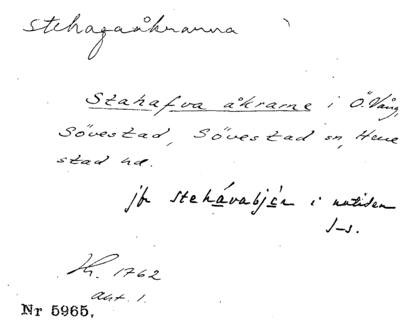 stehagaåkrarna
Stahafva åkrarne i Ö. Vång,
Sövestad, Sövestad sn, Herre
stad hd.
jfr stehávabjér i notisen
J-s.
Lh. 1762
akt. 1.
Nr 5965.